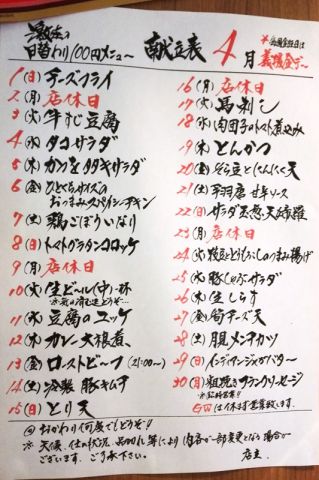 日替わり100円メニュー 献立表 4月
義援金デー
1(日)チーズフライ
2(月)店休日
3(火)牛すじ豆腐
4(水)タコサラダ
5(木)かつをタタキサラダ
6(金)ひとくちサイズの
おつまみスパイシーチキン
7(土)鶏ごぼういなり
8(日)トマトグラタンコロッケ
9(月)店休日
10(火)生ビール(中)一杯
11(水)豆腐のユッケ
12(木)カレー大根煮
13(金)ローストビーフ(21:00〜)
14(土)冷製 豚キムチ
15(日)とり天
16(月)店休日
17(火)馬刺し
18(水)肉団子のトマト煮込み
19(木)とんかつ
20(金)そら豆とにんにく天
21(土)手羽唐 甘辛ソース
22(日)サラダ玉葱 天ぷら
23(月)店休日
24(火)枝豆ととうもろこしのつまみ揚げ
25(水)豚しゃぶサラダ
26(木)生しらす
27(金)筍チーズ天
28(土)肌メンチカツ
29(日)インディアンジャガバター
30(月)粗挽きフランクソーセージ
GWは休まず営業致します。
◎おかわり何度でもどうぞ!!
※天候、仕入状況、品切れ等により内容が一部変更となる場合が
ございます。ご了承下さい。 店主